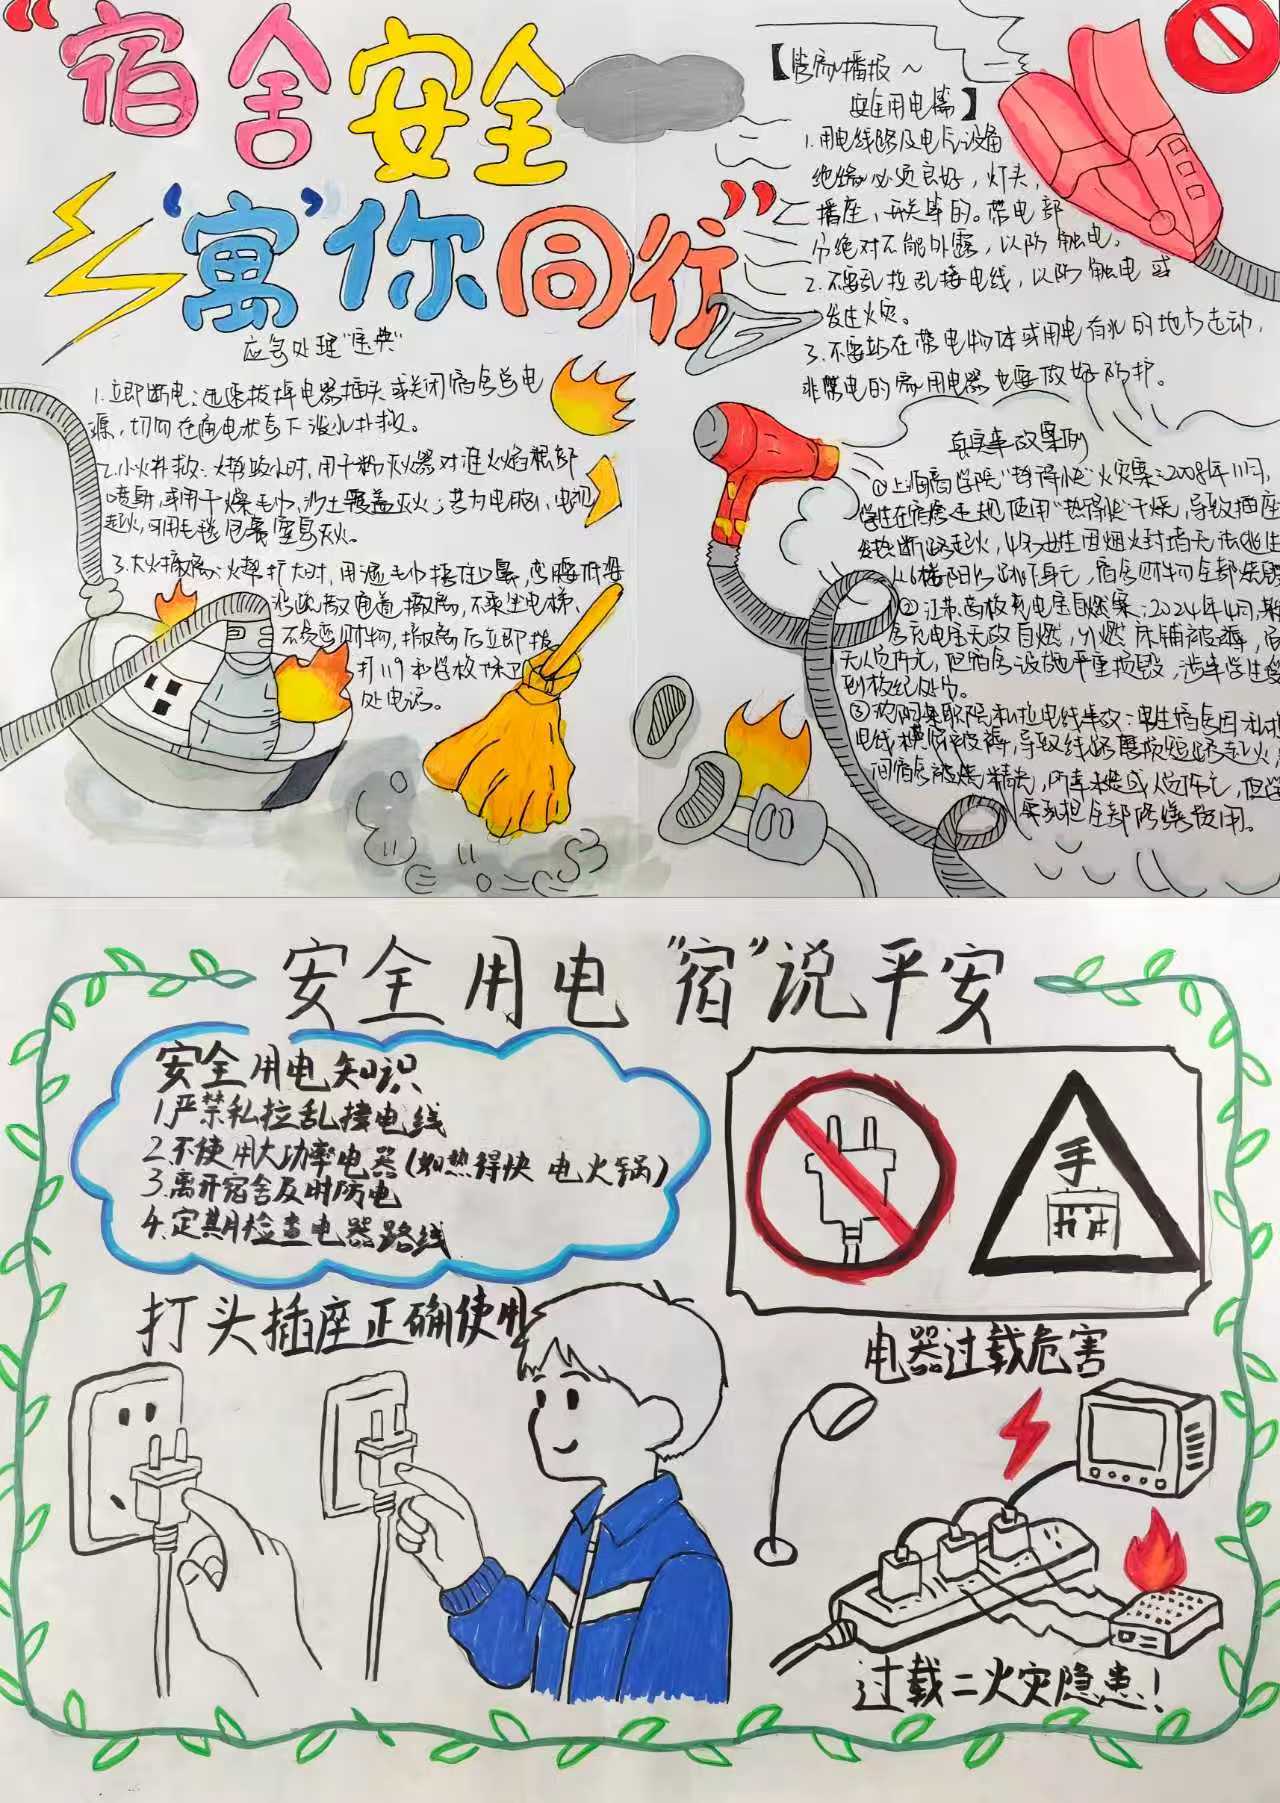 “宿舍安全
“寓”你同行”
应急处理“宝典”
1.立即断电:迅速拔掉电器插头或关闭宿舍总电
源,切勿在通电状态下泼水扑救。
2.小火扑救:火势较小时,用干粉灭火器对准火焰根部
喷射,或用干燥毛巾、沙土覆盖灭火;若为电脑、电视
起火,可用毛毯包裹窒息灭火。
3.大火撤离:火势扩大时,用湿毛巾捂住口鼻,弯腰低姿
沿疏散通道撤离,不乘坐电梯、
不贪恋财物,撤离后立即拨
打119和学校保卫
处电话。
播报~
安全用电篇】
1.用电线路及电气设备
绝缘必须良好,灯头、
插座、开关等的。带电部
分绝对不能外露,以防触电。
2.不要乱拉乱接电线,以防触电或
发生火灾。
3.不要站在带电物体或用电有水的地方走动,
非带电的家用电器也要做好防护。
真实事故案例
①上海商学院“热得快”火灾案:2008年11月,
学生在宿舍违规使用“热得快”干烧,导致插座
断路起火,4名女生因烟火封堵无法逃生
从6楼阳台跳下身亡,宿舍财物全部烧毁
②江苏高校充电宝自燃案:2024年4月,某
舍充电宝无故自燃,引燃床铺被褥,
无人伤亡,但宿舍设施严重损毁,涉事学生受
到校纪处分。
③沈阳某职院私拉电线事故:
电线模 被褥,导致线路 短路起火,
间宿舍被烧 , 人员伤亡,但
承担全部修缮费用。
安全用电“宿”说平安
安全用电知识
1.严禁私拉乱接电线
2.不使用大功率电器(如热得快 电火锅)
3.离开宿舍及时防电
4.定期检查电器路线
打头插座正确使用
手
电器过载危害
过载二火灾隐患!